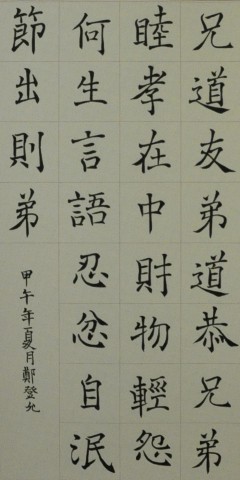 兄道友弟道恭兄弟
睦孝在中財物輕怨
何生言語忍忿自泯
節出則弟
甲午年夏月鄭登允